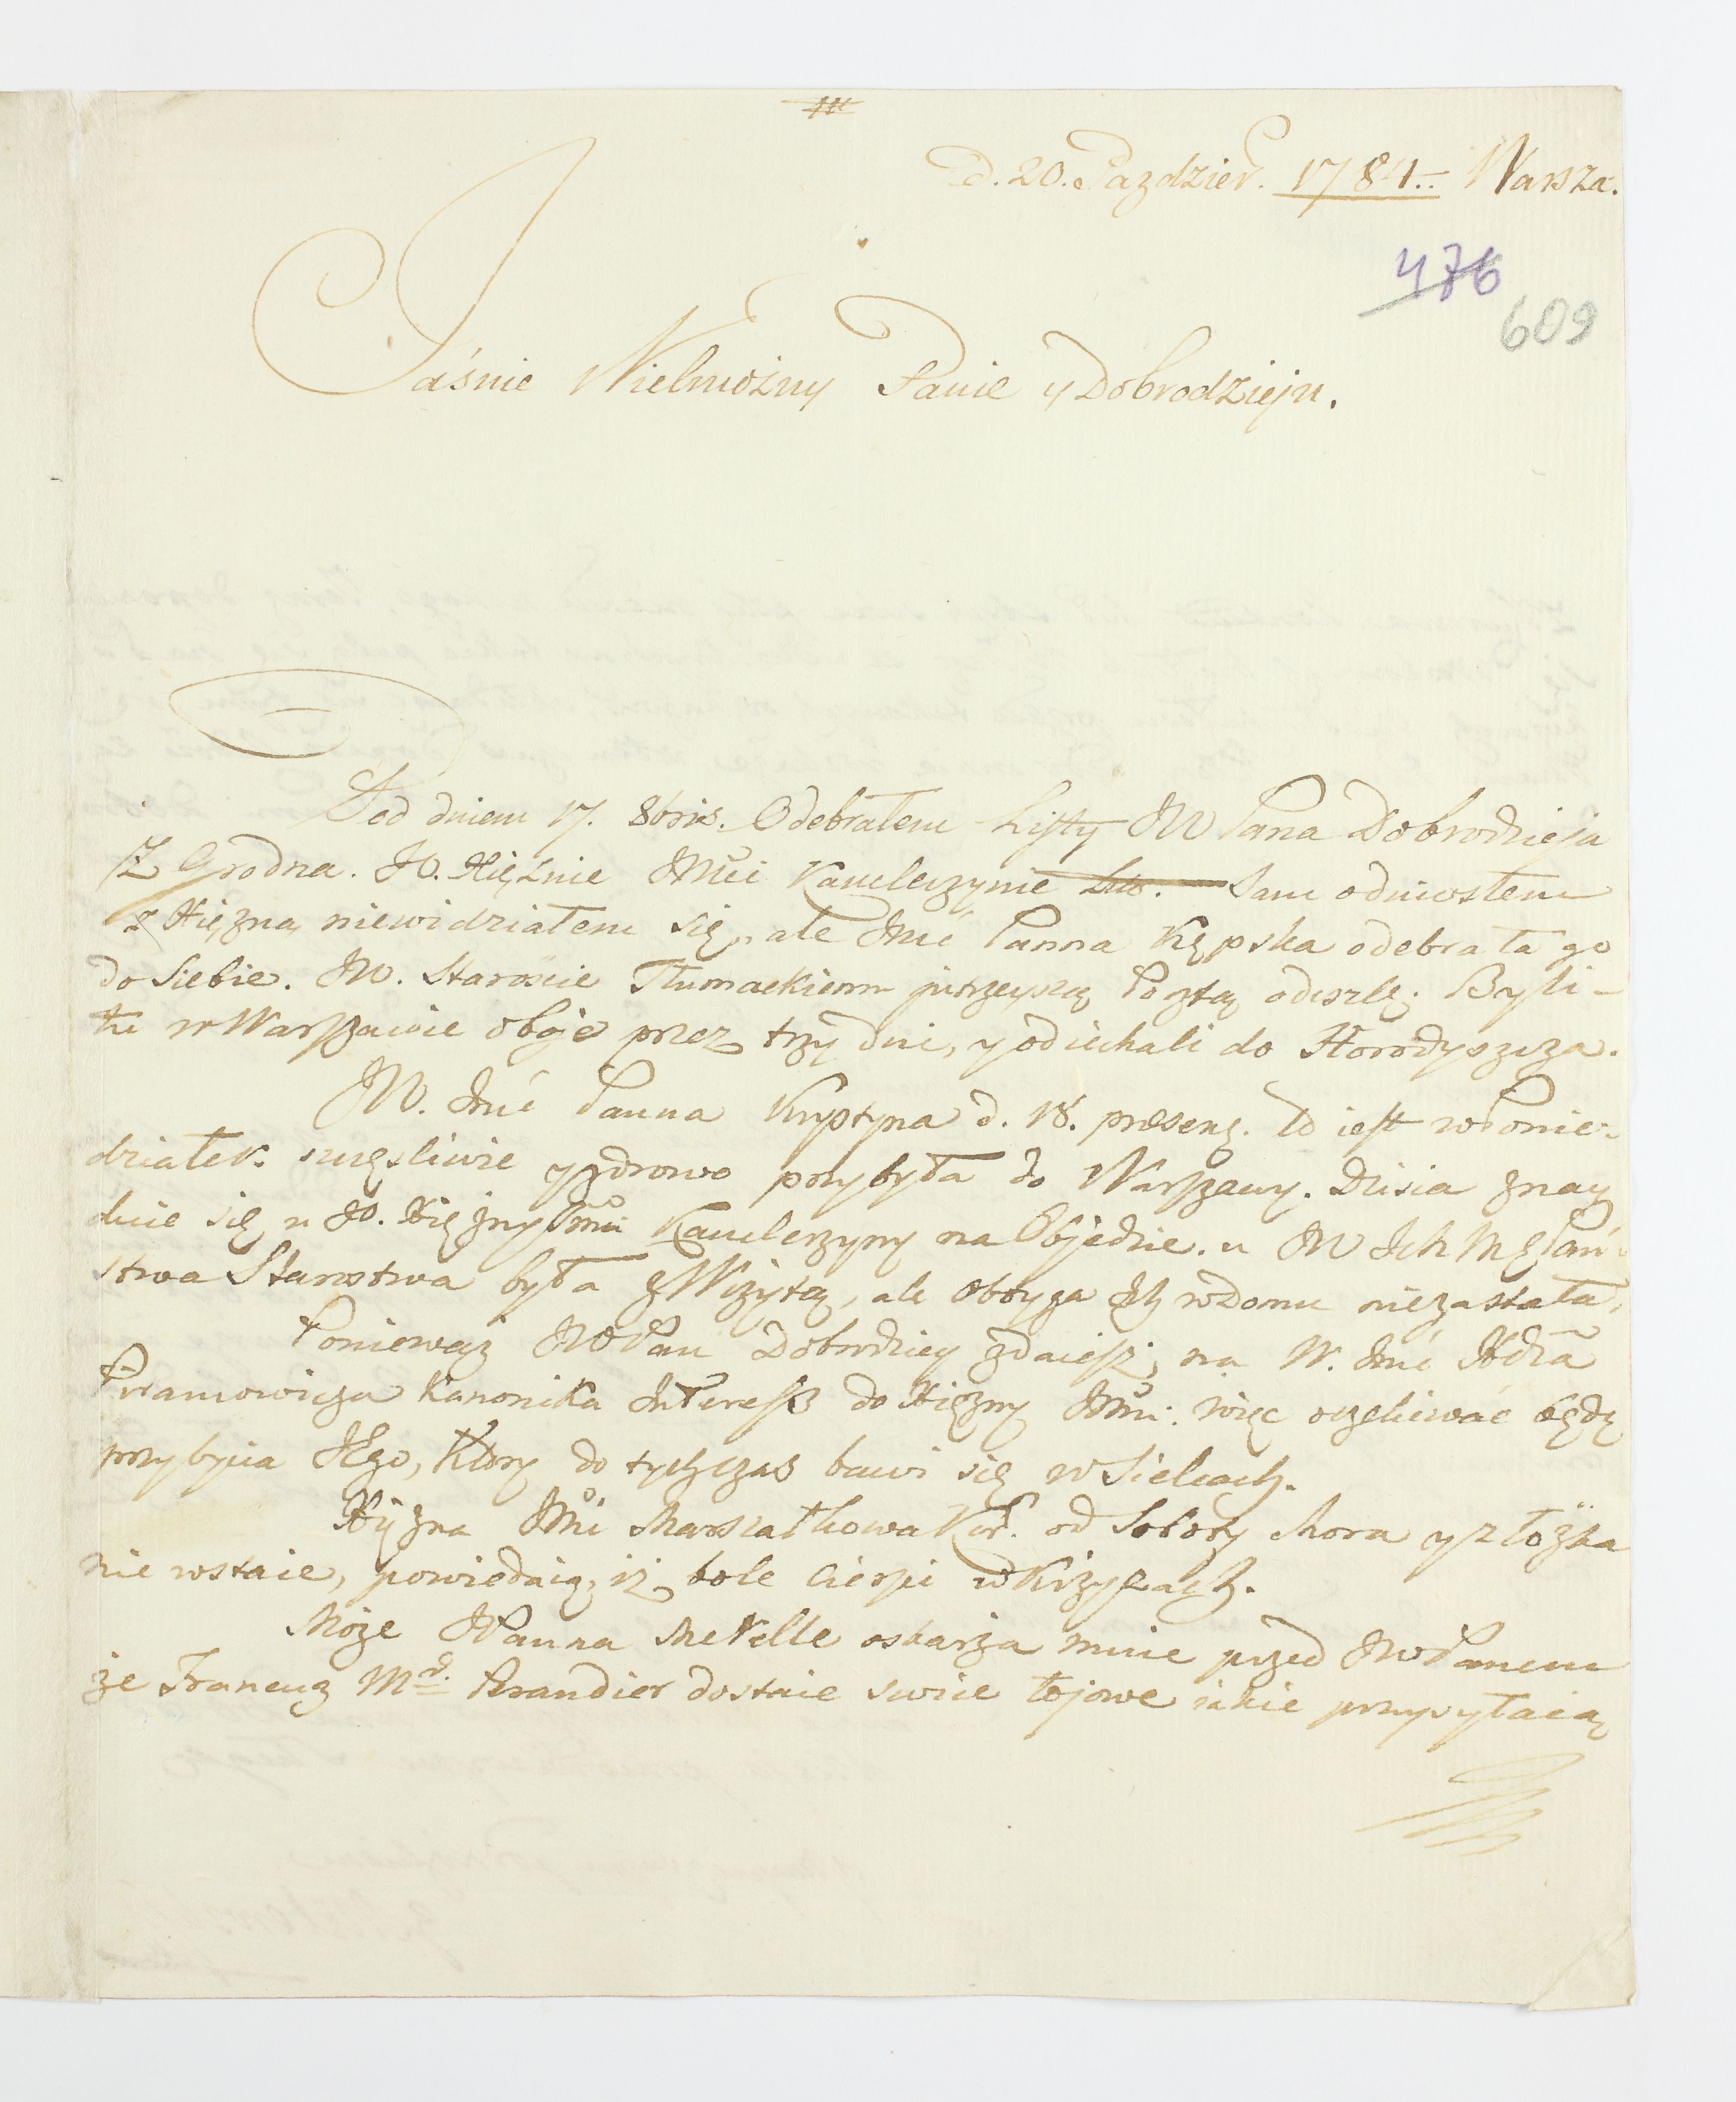 D. 20. Pazdzier. 1784.. Warsza.
476
609
Jaśnie Wielmożny Panie y Dobrodzieju.
Pod dniem 17. 8bris. Odebrałem Listy JW Pana Dobrodzieja
Z Grodna. JO. Xiężnie Jmci Kanclerzynie Lit. Sam odniosłem
z Xiężną niewidziałem się, ale Jmć Panna Kępska odebrała go
do siebie. JW. Staroscie Tłumackiemu jutrzeyszą Pocztą odeszlę. Byli
tu w Warszawie oboje przez trzy dni, y odiechali do Horodyszcza.
JW. Jmć Panna Krystyna d. 18. præsens. to iest w Ponie-
działek. szczęsliwie y zdrowo przybyła do Warszawy. Dzisia znay
duie się u JO. Xiężny Jmci Kanclerzyny na Objedzie. u JW Ich Mć Pań
stwa Starostwa była z Wizytą, ale obojga Ich w domu niezastała.
Ponieważ JW Pan Dobrodziey zdaiesz, na W. Jmć Xdza
Piramowicza Kanonika Interess do Xiężny Jmci. więc oczekiwać będę
przybycia JEgo, ktory do tychczas bawi się w Sielcach.
Xiężna Jmci Marszałkowa Kor. od Soboty chora y z łożka
nie wstaie, powiedaią, iż bole cierpi w Krzyżach.
Może JPanna Mekelle oskarża mnie przed JW Panem
że Francuz Mr. Prandier dostaie swice łojowe iakie przysyłaią